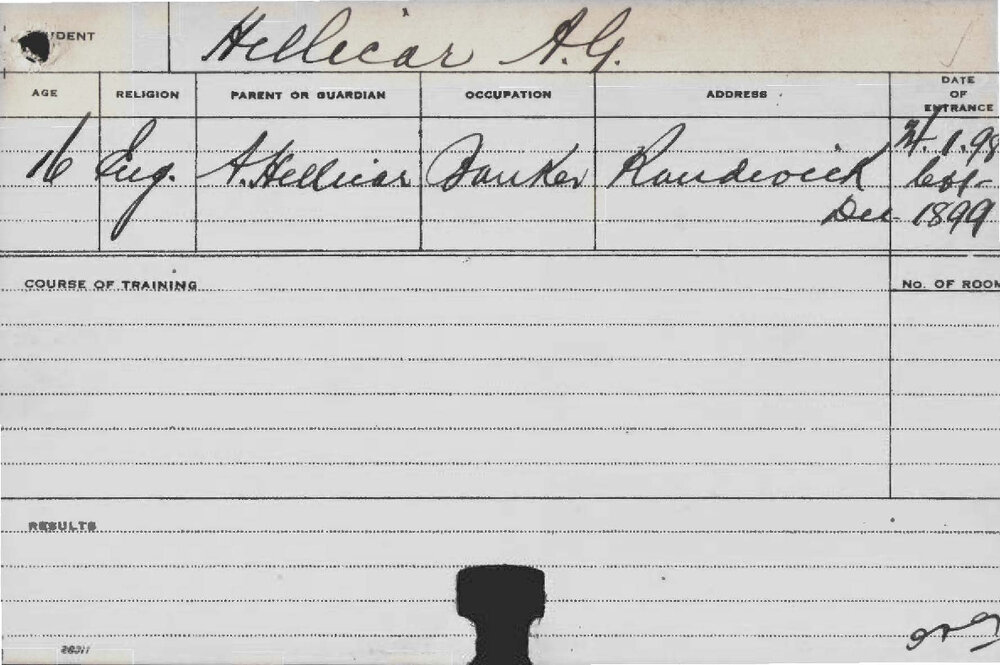 STUDENT Hellicar A.G.
AGE RELIGION PARENT OR GUARDIAN OCCUPATION ADDRESS DATE OF ENTRANCE
16 Eng. A. Hellicar Banker Randwick 1.98
Dec 1899
COURSE OF TRAINING No. OF ROOM
RESULTS